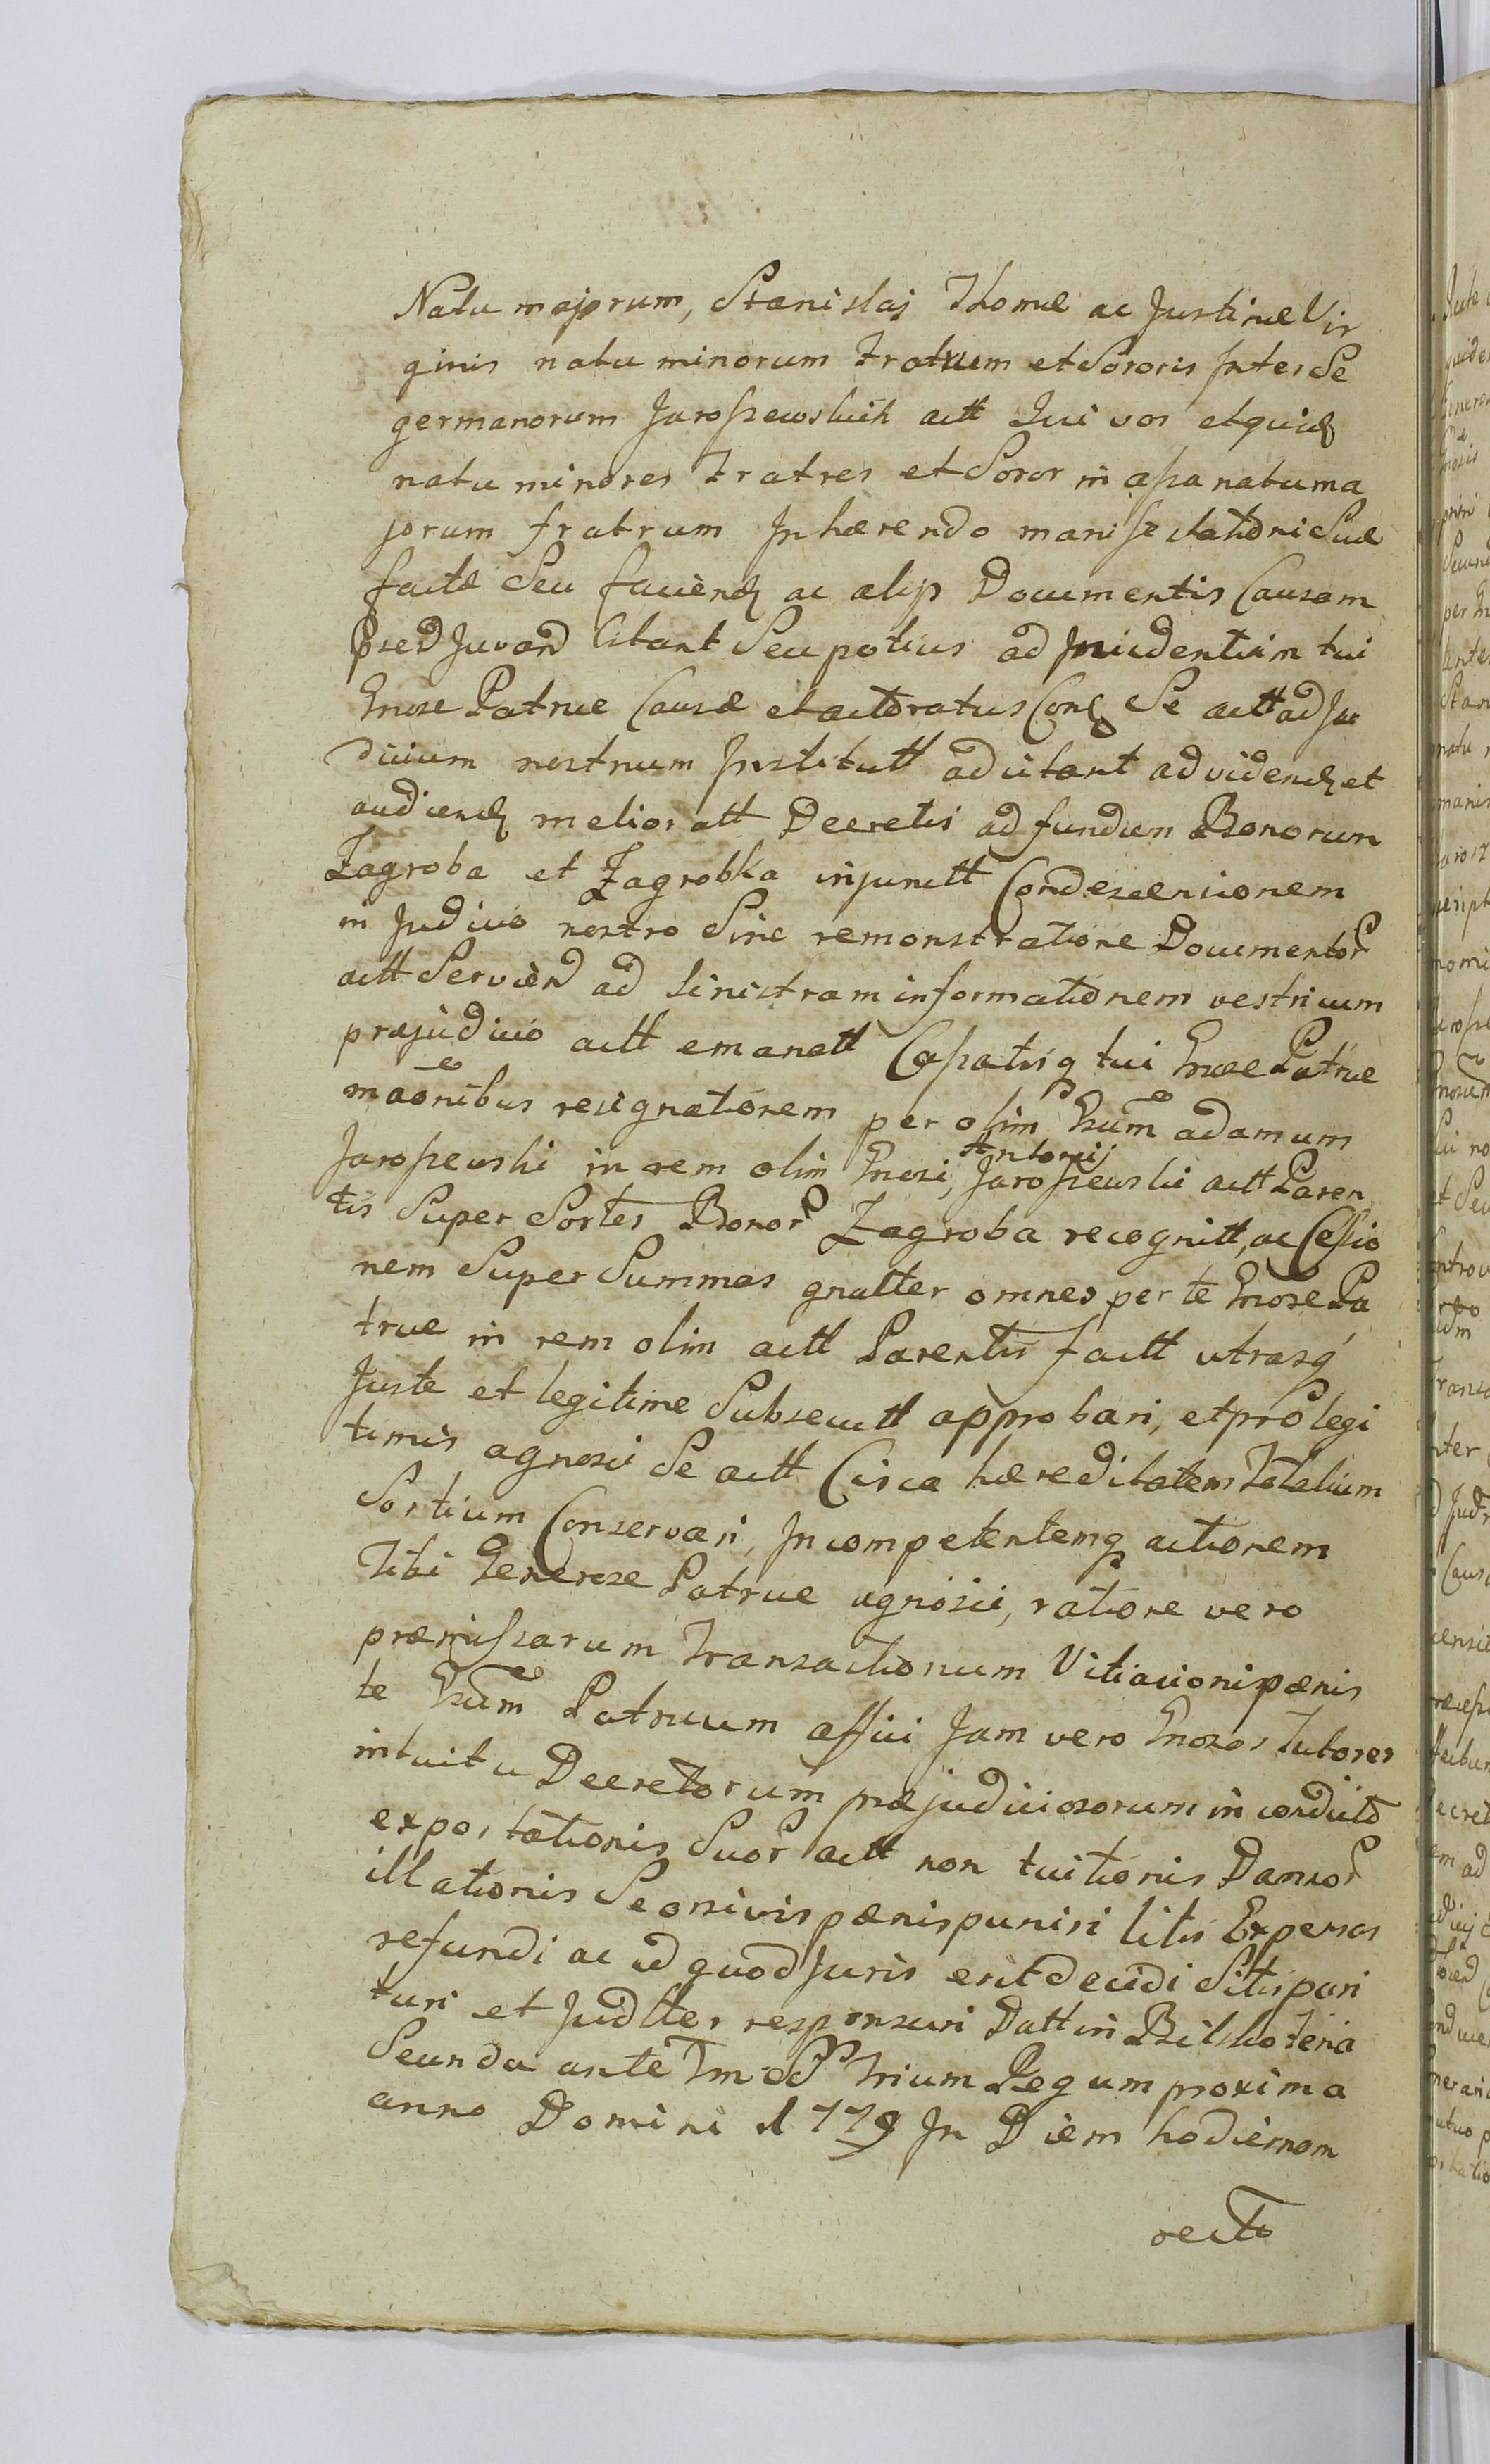 Natu majorum, Stanislaj Thomæ ac Justinæ Vir
ginis natu minorum Fratrum et Sororis Inter Se
germanorum Jaroszewskich actt Qui vos et quid
natu minores Fratres et Soror in assa natu ma
jorum fratrum Inhærendo manifestationi Suæ
factæ Seu faciend ac alijs Documentis Causam
præd Juvand Citant Seu potius ad Incidentiam tui
Gnose Patrue Causæ et actoratus Conq Se actt ad Ju
dicium nostrum Institutt adcitant ad vidend et
audiend melioratt Decretis ad fundum Bonorum
Zagroba et Zagrobka injunctt Condescensionem
in Judicio nostro Sine remonstratione Documentor
actt Serviend ad Sinistram informationem vestri cum
præjudicio actt emanatt Cassatisq tui Gnose Patrue
maonibus resignationem per olim Gsum adamum
Jaroszewski in rem olim Gnosi, Antonij Jaroszewski actt Paren
tis Super Sortes Bonor Zagroba recognitt, ac Cessio
nem Super Summas gnalter omnes per te Gnose Pa
true in rem olim actt Parentis factt utrasq
Juste et legitime Subsecutt approbari, et pro legi
timis agnosci Se actt Circa hæreditatem Totalium
Sortium Conservari, Incompetentemq actionem
Tibi Generose Patrue agnosci, ratione vero
præmissarum Transactionum Vitiacioni pænis
te Gsum Patruum affici Jam vero Gnosos Tutores
intuitu Decretorum præjudiciosorum in condicto
exportationis Suor actt non tuitionis Damnor
illationis Se onsivis pænis puniri litis Expensas
refundi ac id quod Juris erit decidi Sitis pari
turi et Judlter responsuri Datt in Bilskoteria
Secunda ante Fm SS Trium Regum proxima
anno Domini 1779 In Diem hodiernam
recto